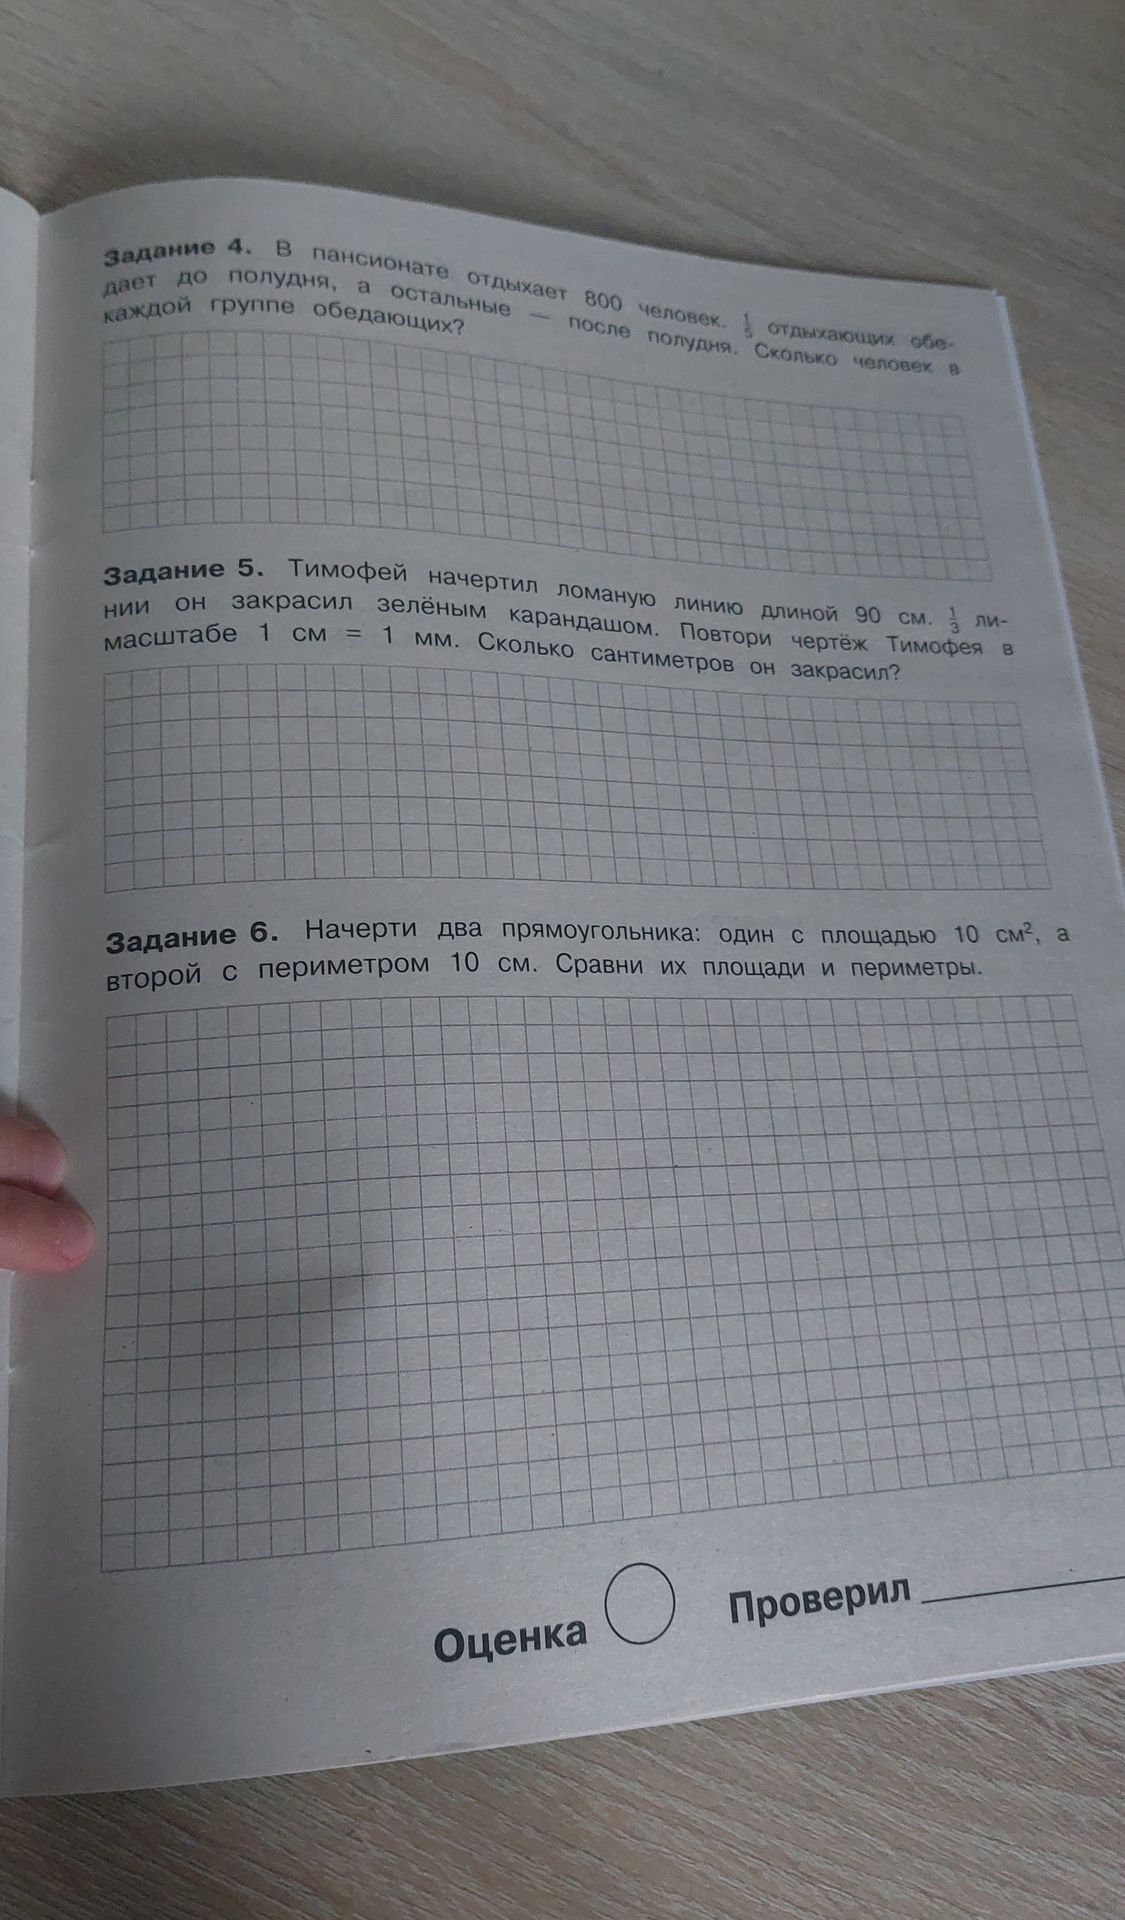 Задание 4. В пансионате отдыхает 800 человек. 1/5 отдыхающих обе-
дает до полудня, а остальные — после полудня. Сколько человек в
каждой группе обедающих?
Задание 5. Тимофей начертил ломаную линию длиной 90 см. 1/3 ли-
нии он закрасил зелёным карандашом. Повтори чертёж Тимофея в
масштабе 1 см = 1 мм. Сколько сантиметров он закрасил?
Задание 6. Начерти два прямоугольника: один с площадью 10 см², а
второй с периметром 10 см. Сравни их площади и периметры.
Оценка Проверил